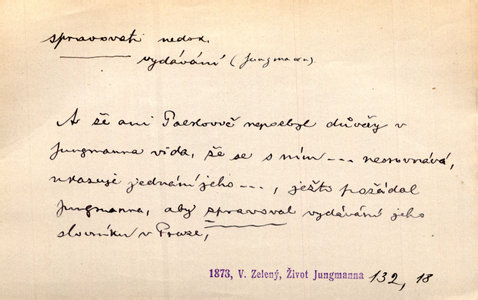 spravovati nedok.
vydávání (Jungmann).
A že ani Palkovič nepozbyl důvěry v
Jungmanna vida, že se s ním --- nesrovnává,
ukazuje jednání jeho ---, ježto požádal
Jungmanna, aby spravoval vydávání jeho
slovníku v Praze,
1873, V. Zelený, Život Jungmanna 132, 18